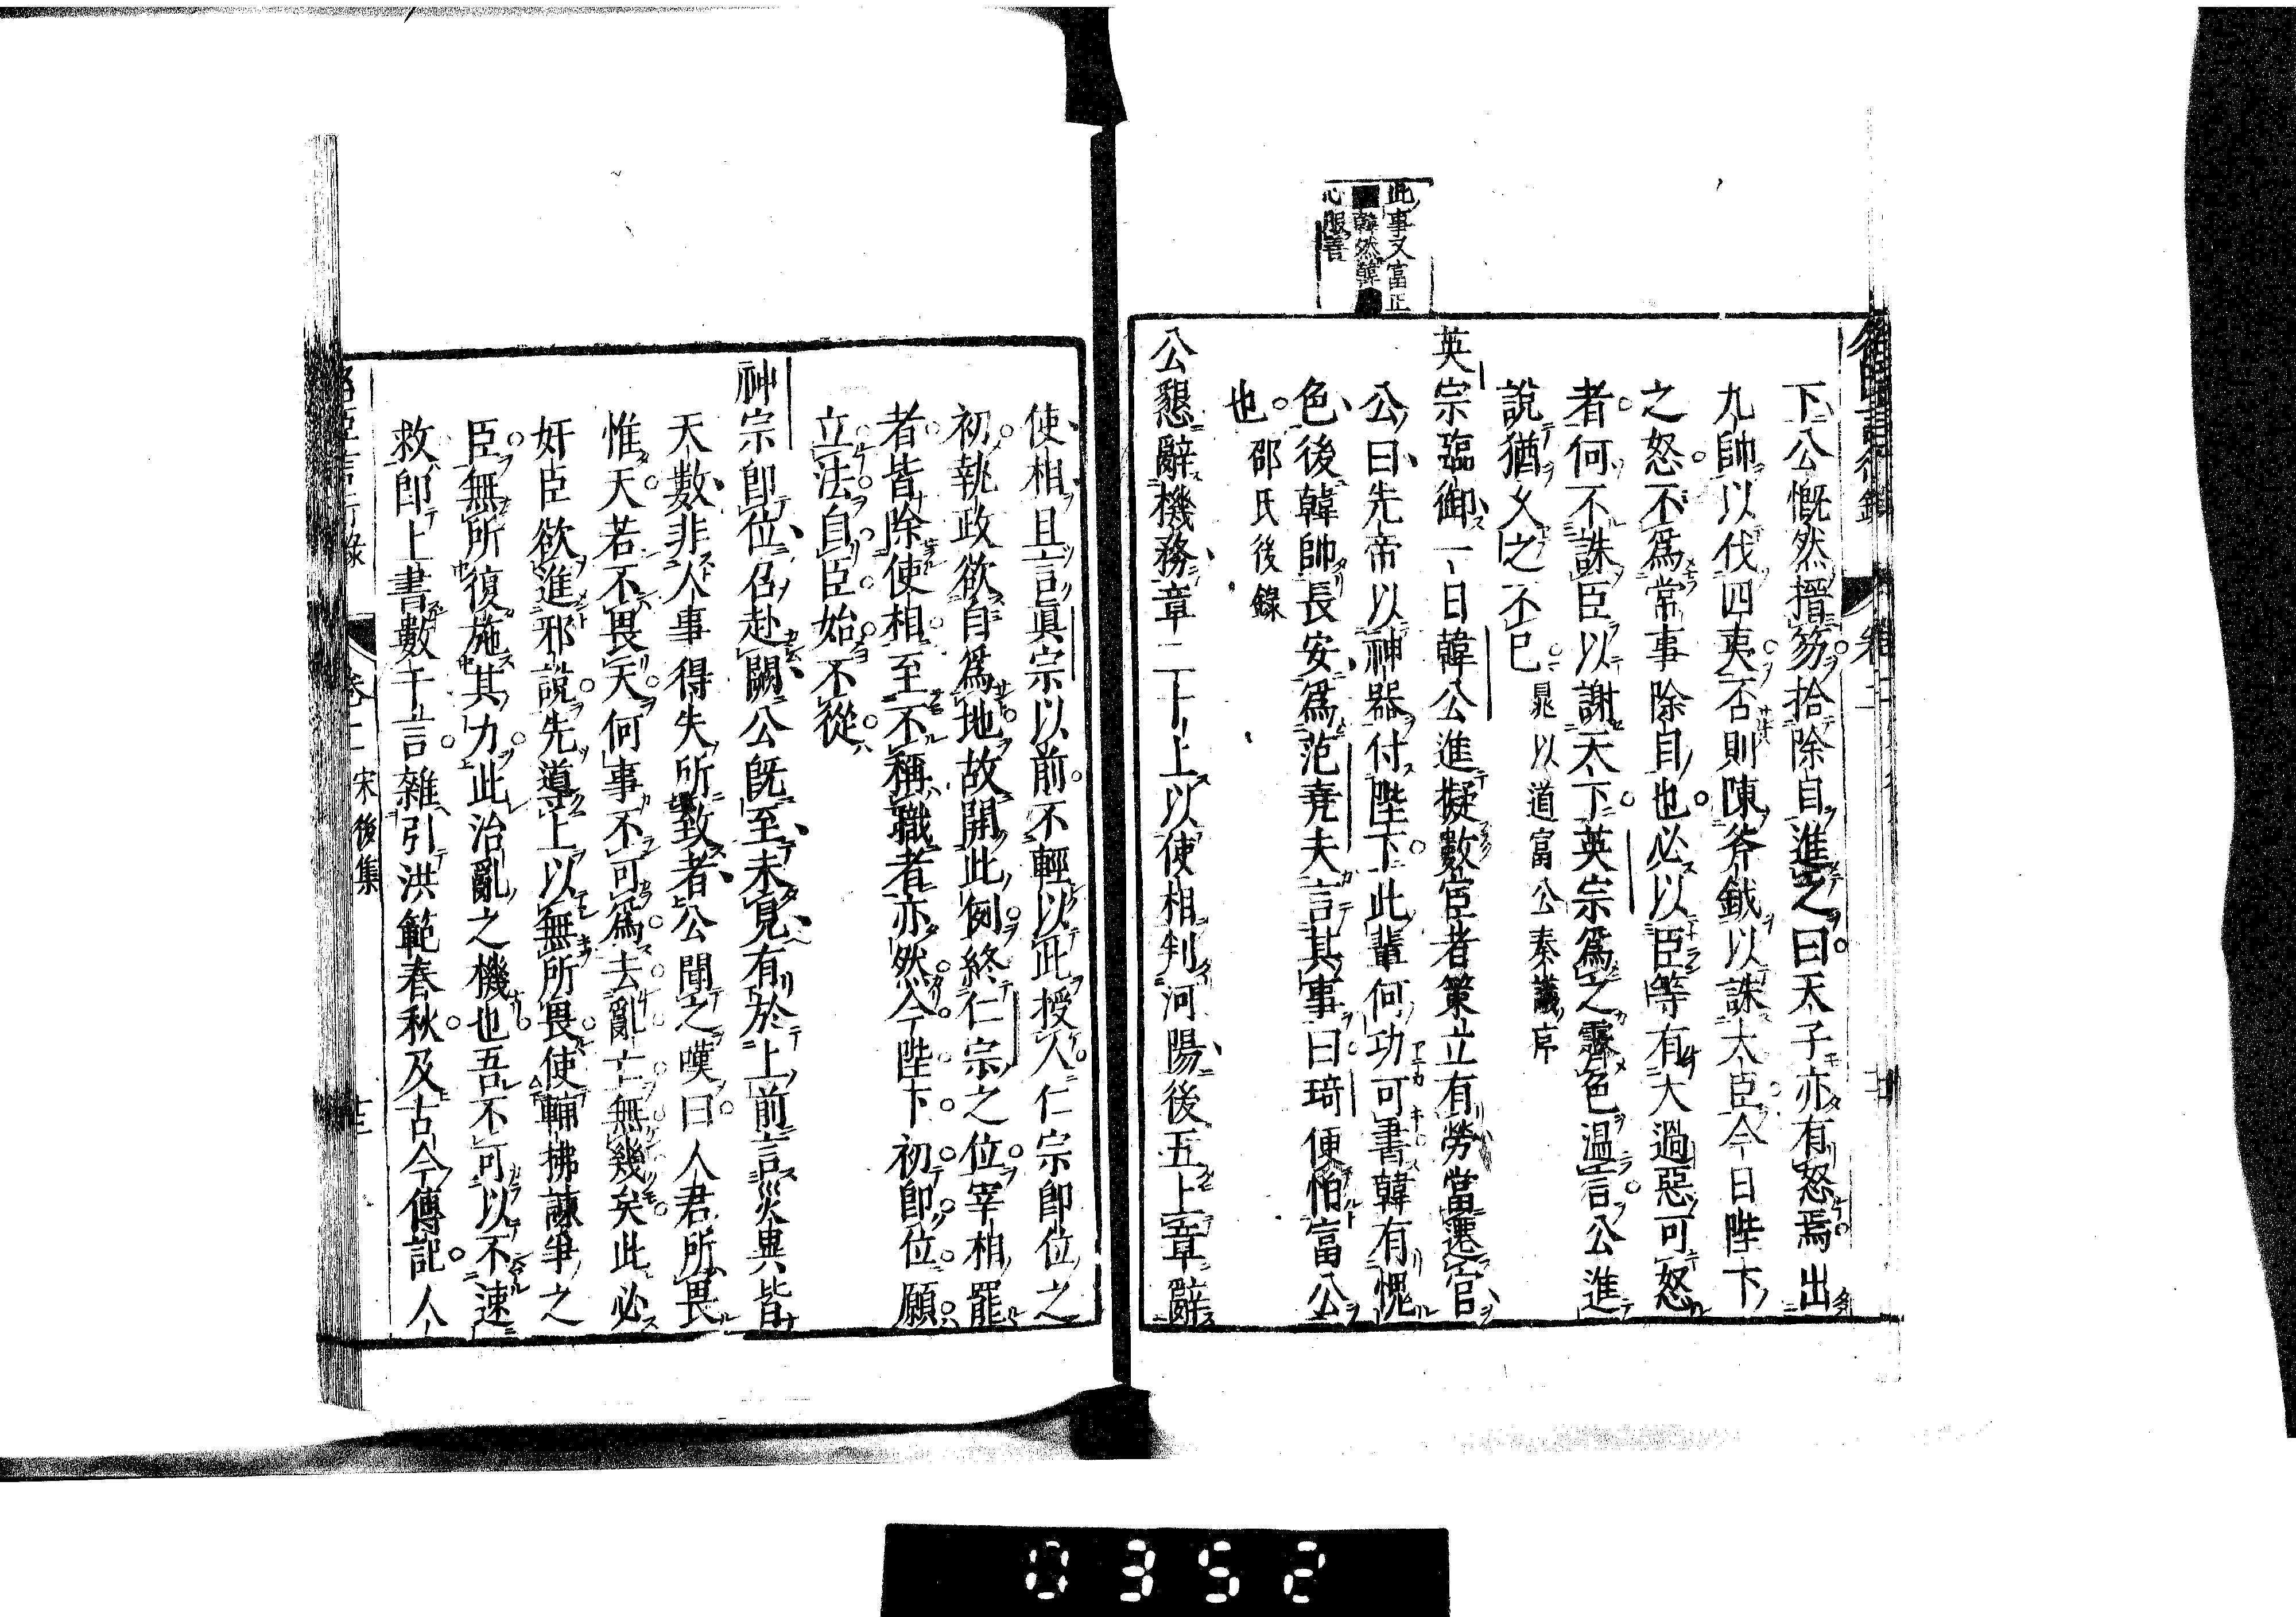 此事又富正
韓然韓
心服善
下公慨然搢笏拾除自進之曰天子亦有怒焉出
九帥以伐四夷否則陳斧鉞以誅大臣今日陛下
之怒不爲常事除自也必以臣等有大過惡可怒
者何不誅臣以謝天下英宗爲之霽色溫言公進
說猶久之不已 晁以道富公奏議序
英宗臨御一日韓公進擬數宦者策立有勞當遷官
公曰先帝以神器付陛下此輩何功可書韓有愧
色後韓帥長安爲范堯夫言其事曰琦便怕富公
也 邵氏後錄
公懇辭機務章二十上以使相判河陽後五上章辭
使相且言眞宗以前不輕以此授人仁宗即位之
初執政欲自爲地故開此例終仁宗之位宰相罷
者皆除使相至不稱職者亦然今陛下初即位願
立法自臣始不從
神宗即位召赴闕公旣至未見有於上前言災異皆
天數非人事得失所致者公聞之嘆曰人君所畏
惟天若不畏天何事不可爲去亂亡無幾矣此必
奸臣欲進邪說先導上以無所畏使輔拂諫爭之
臣無所復施其力此治亂之機也吾不可以不速
救即上書數千言雜引洪範春秋及古今傳記人
臣言行錄 卷二 宋後集